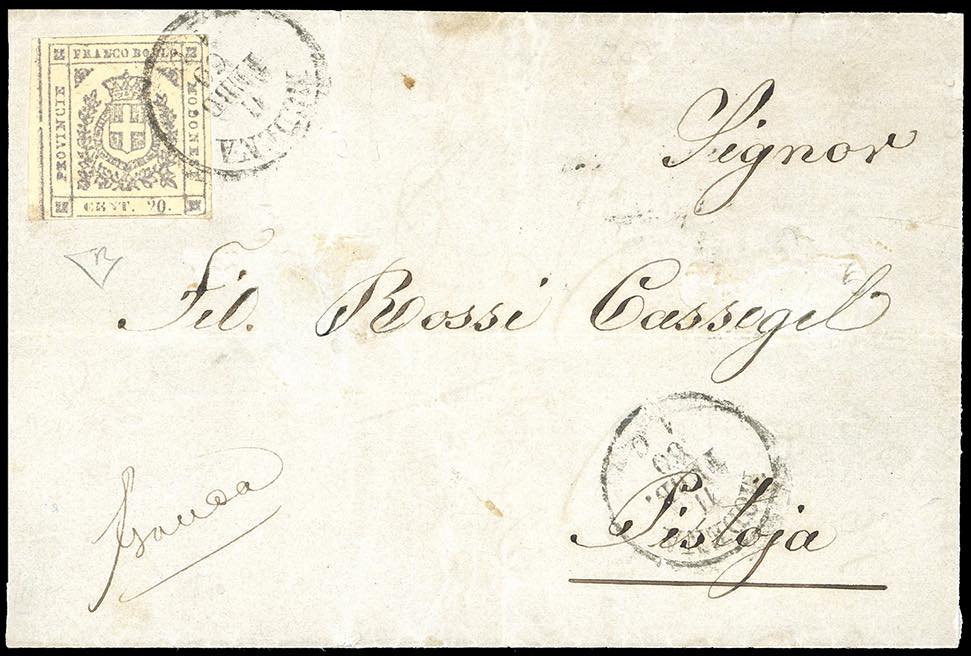 FRANCO BOLLO
PROVINCIE
MODONESI
CENT. 20.
MODENA
11
60
Signor
Fil. Rossi Cassegil
Pistoja
MODENA
11
60